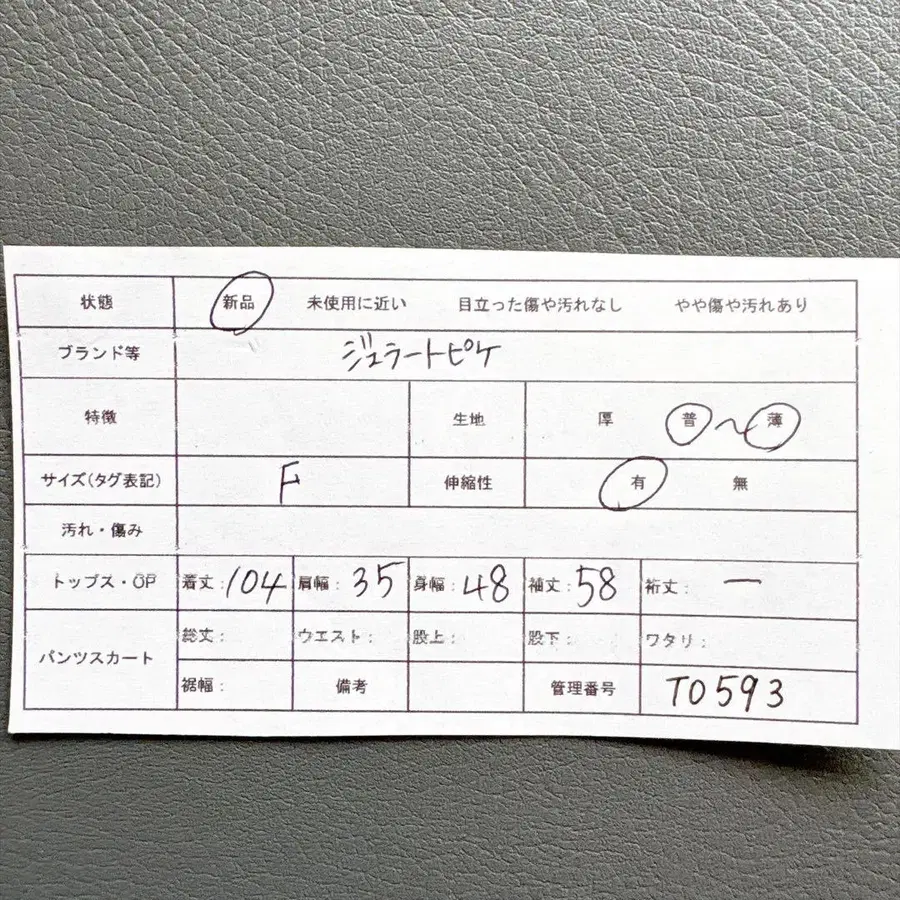 状態 新品 未使用に近い 目立った傷や汚れなし やや傷や汚れあり
ブランド等 ジェラートピケ
特徴 生地 厚 普 〜 薄
サイズ(タグ表記) F 伸縮性 有 無
汚れ・傷み
トップス・OP 着丈: 104 肩幅: 35 身幅: 48 補丈: 58 裄丈: ー
パンツスカート 総丈: ウエスト: 股上: 股下: ワタリ:
裾幅: 備考 管理番号 T0593